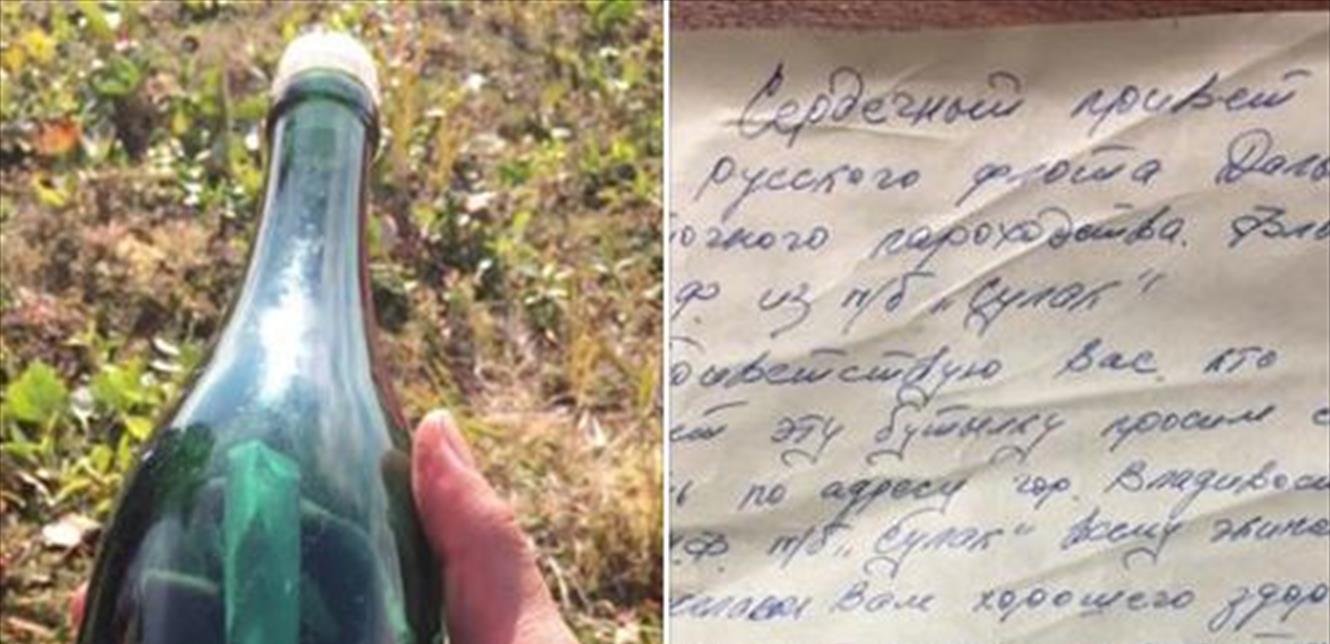 Сердечный привет
русского флота Даль
очного пароходства. Вла
ф. из т/б "Сулак"
ветствую Вас кто
ет эту бутылку просим с
ь по адресу гор. Владивос
.Ф. т/б "Сулак" всему экипа
желаем Вам хорошего здор